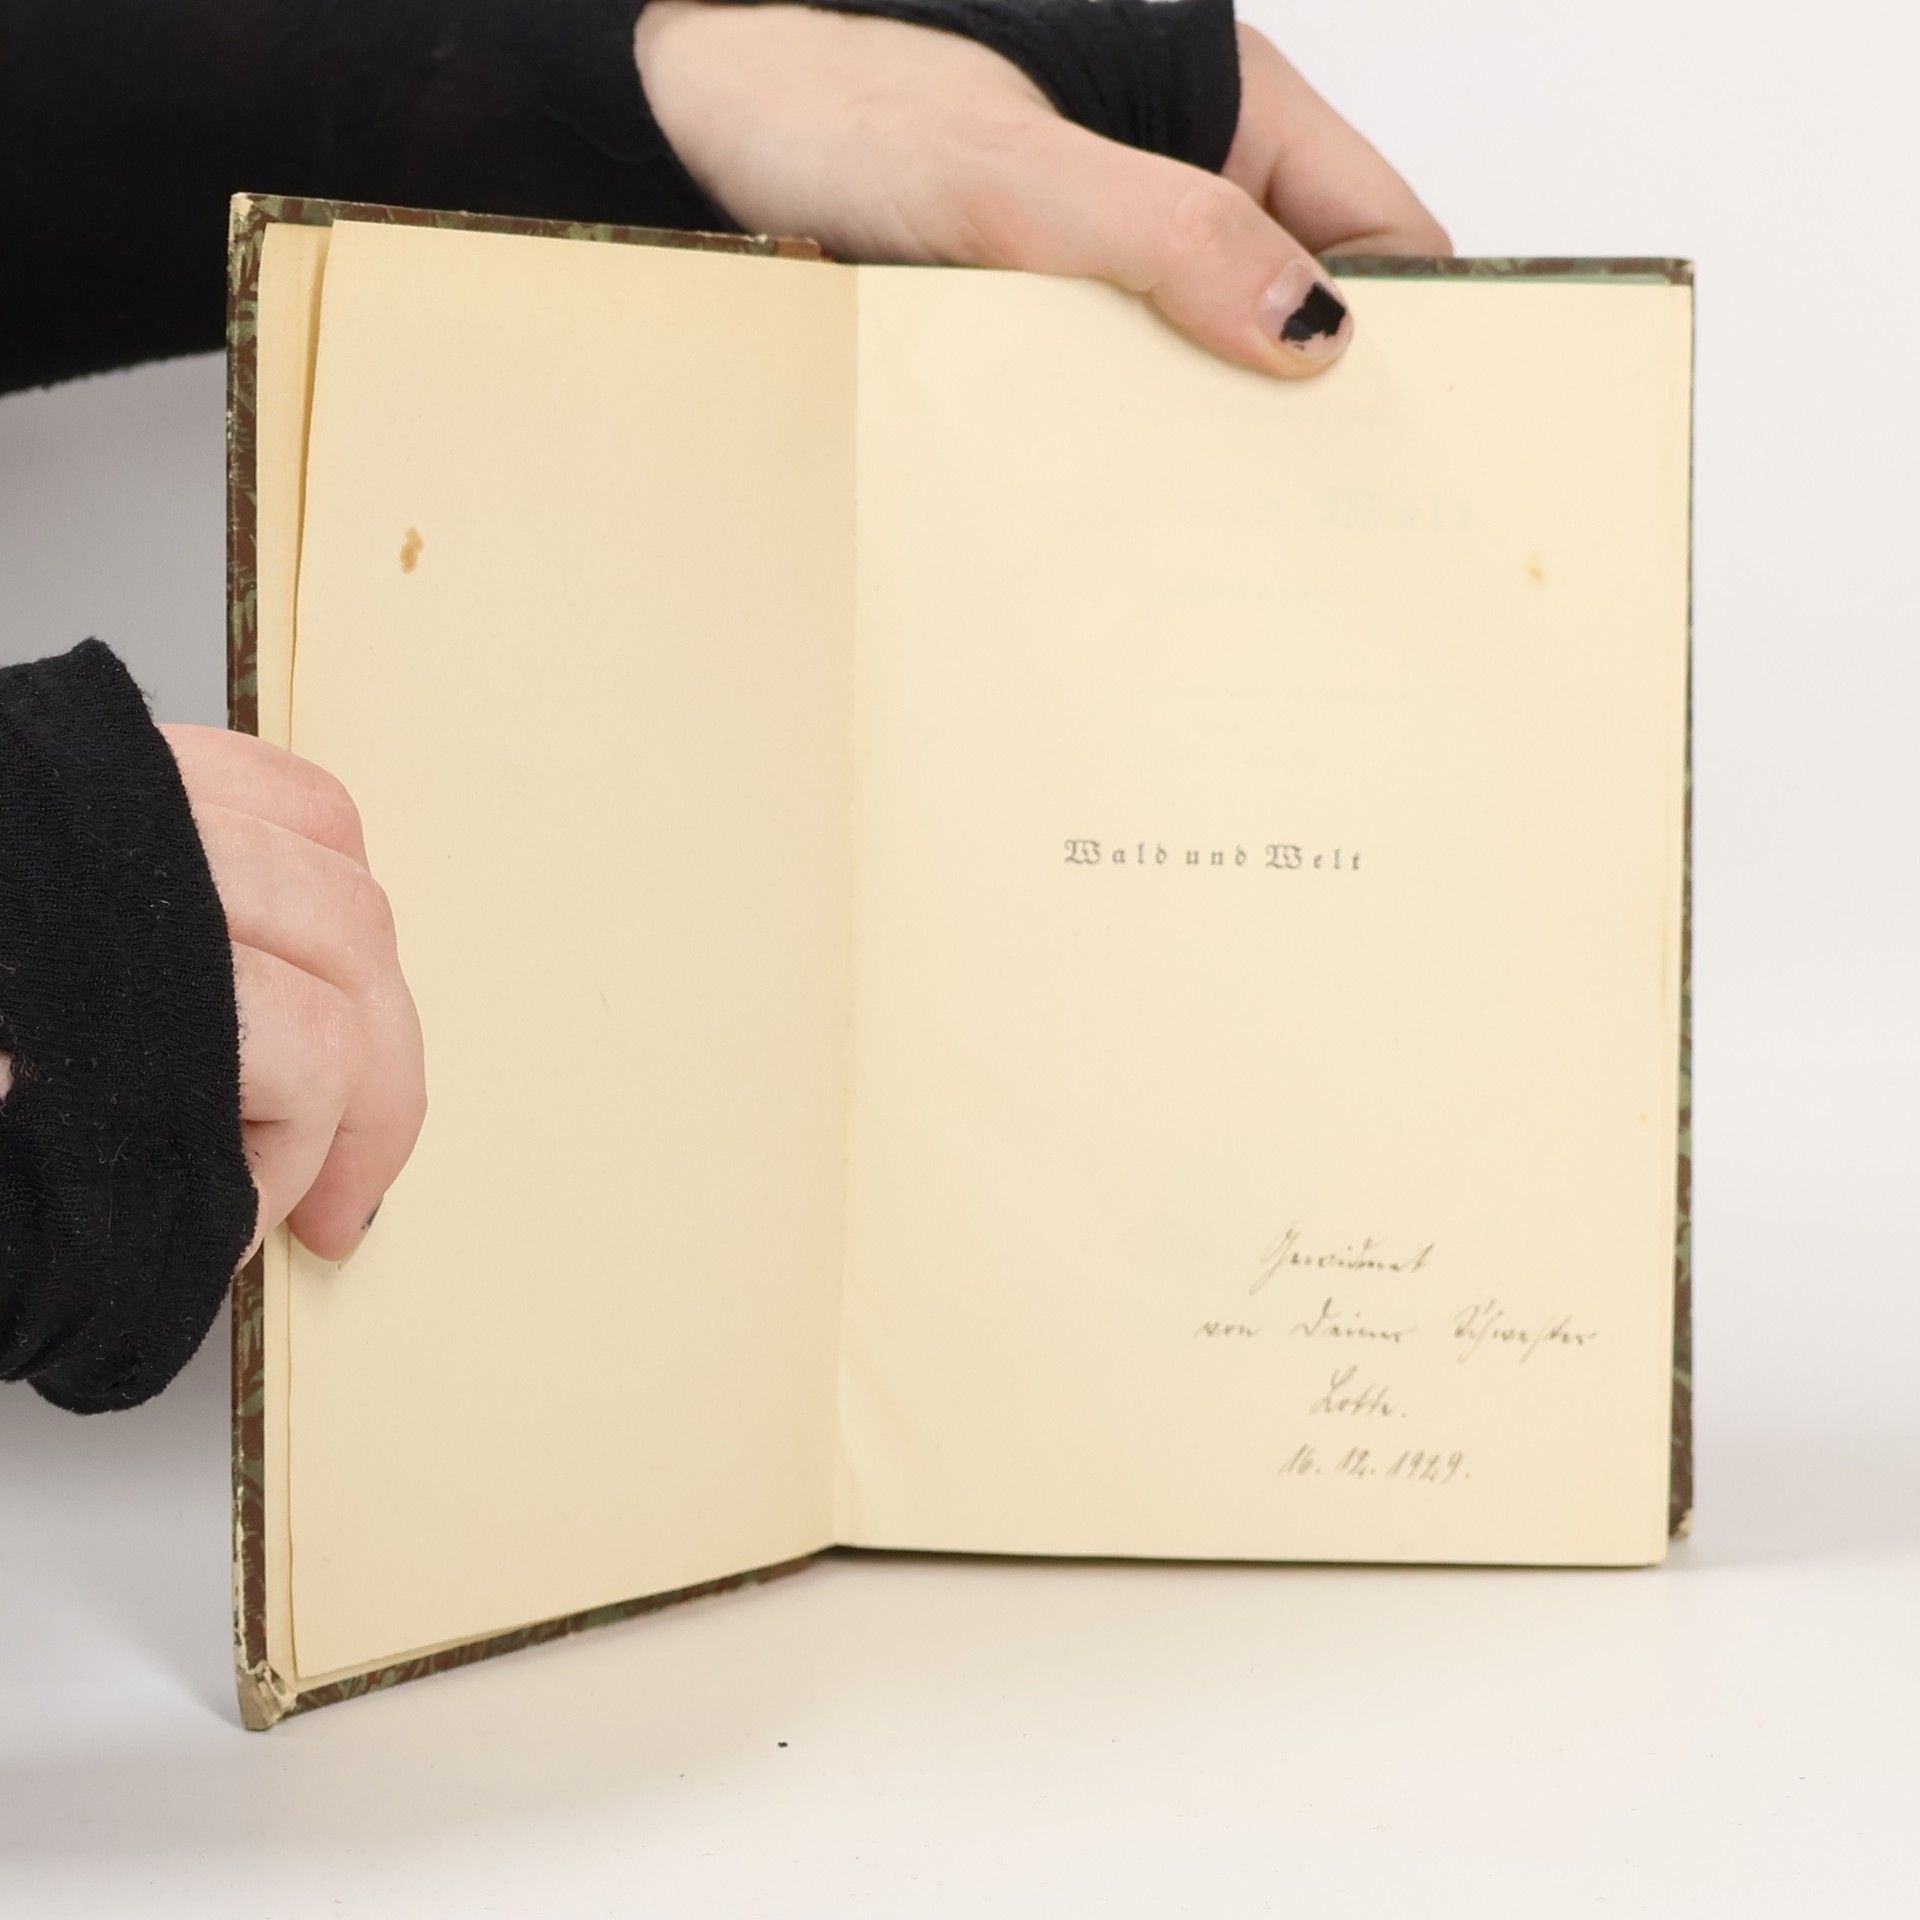 Wald und Welt
Gewidmet
von Deiner Schwester
Lotte.
16. 12. 1929.